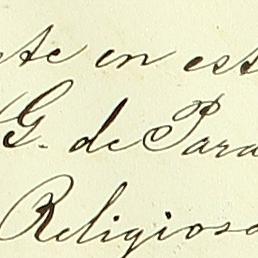 te en est
G. de Para
Religioso